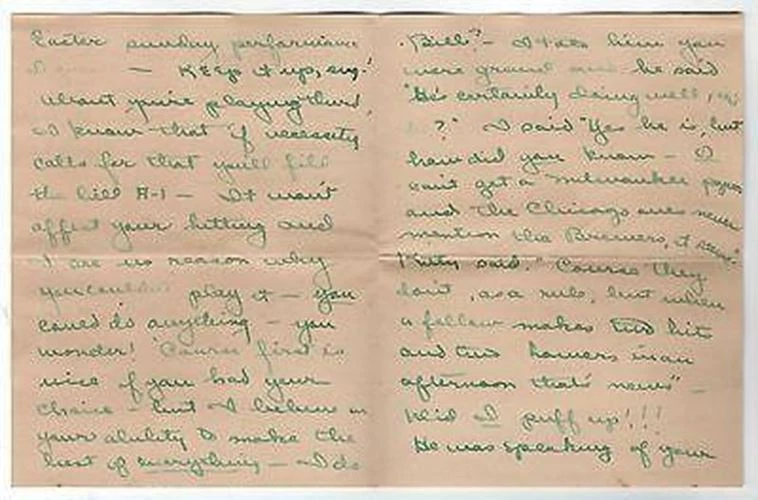 Easter Sunday performance
— Keep it up,
about you're playing third,
I know that if necessity
calls for that you'll fill
the bill A-1 — It won't
affect your hitting and
I see no reason why
you couldn't play it — you
could do anything — you
wonder! 'Course first is
nice if you had your
choice — but I believe in
your ability to make the
best of everything — I do
Bill" — I told him you
were grand and he said
"He's certainly doing well,
?" I said "Yes he is, but
how did you know — I
can't get a Milwaukee paper
and the Chicago ones never
mention the Brewers, it seems".
Kitty said. "Course they
don't, as a rule, but when
a fellow makes two hits
and two homers in an
afternoon that's news" —
Kid I puff up!!!
He was speaking of your